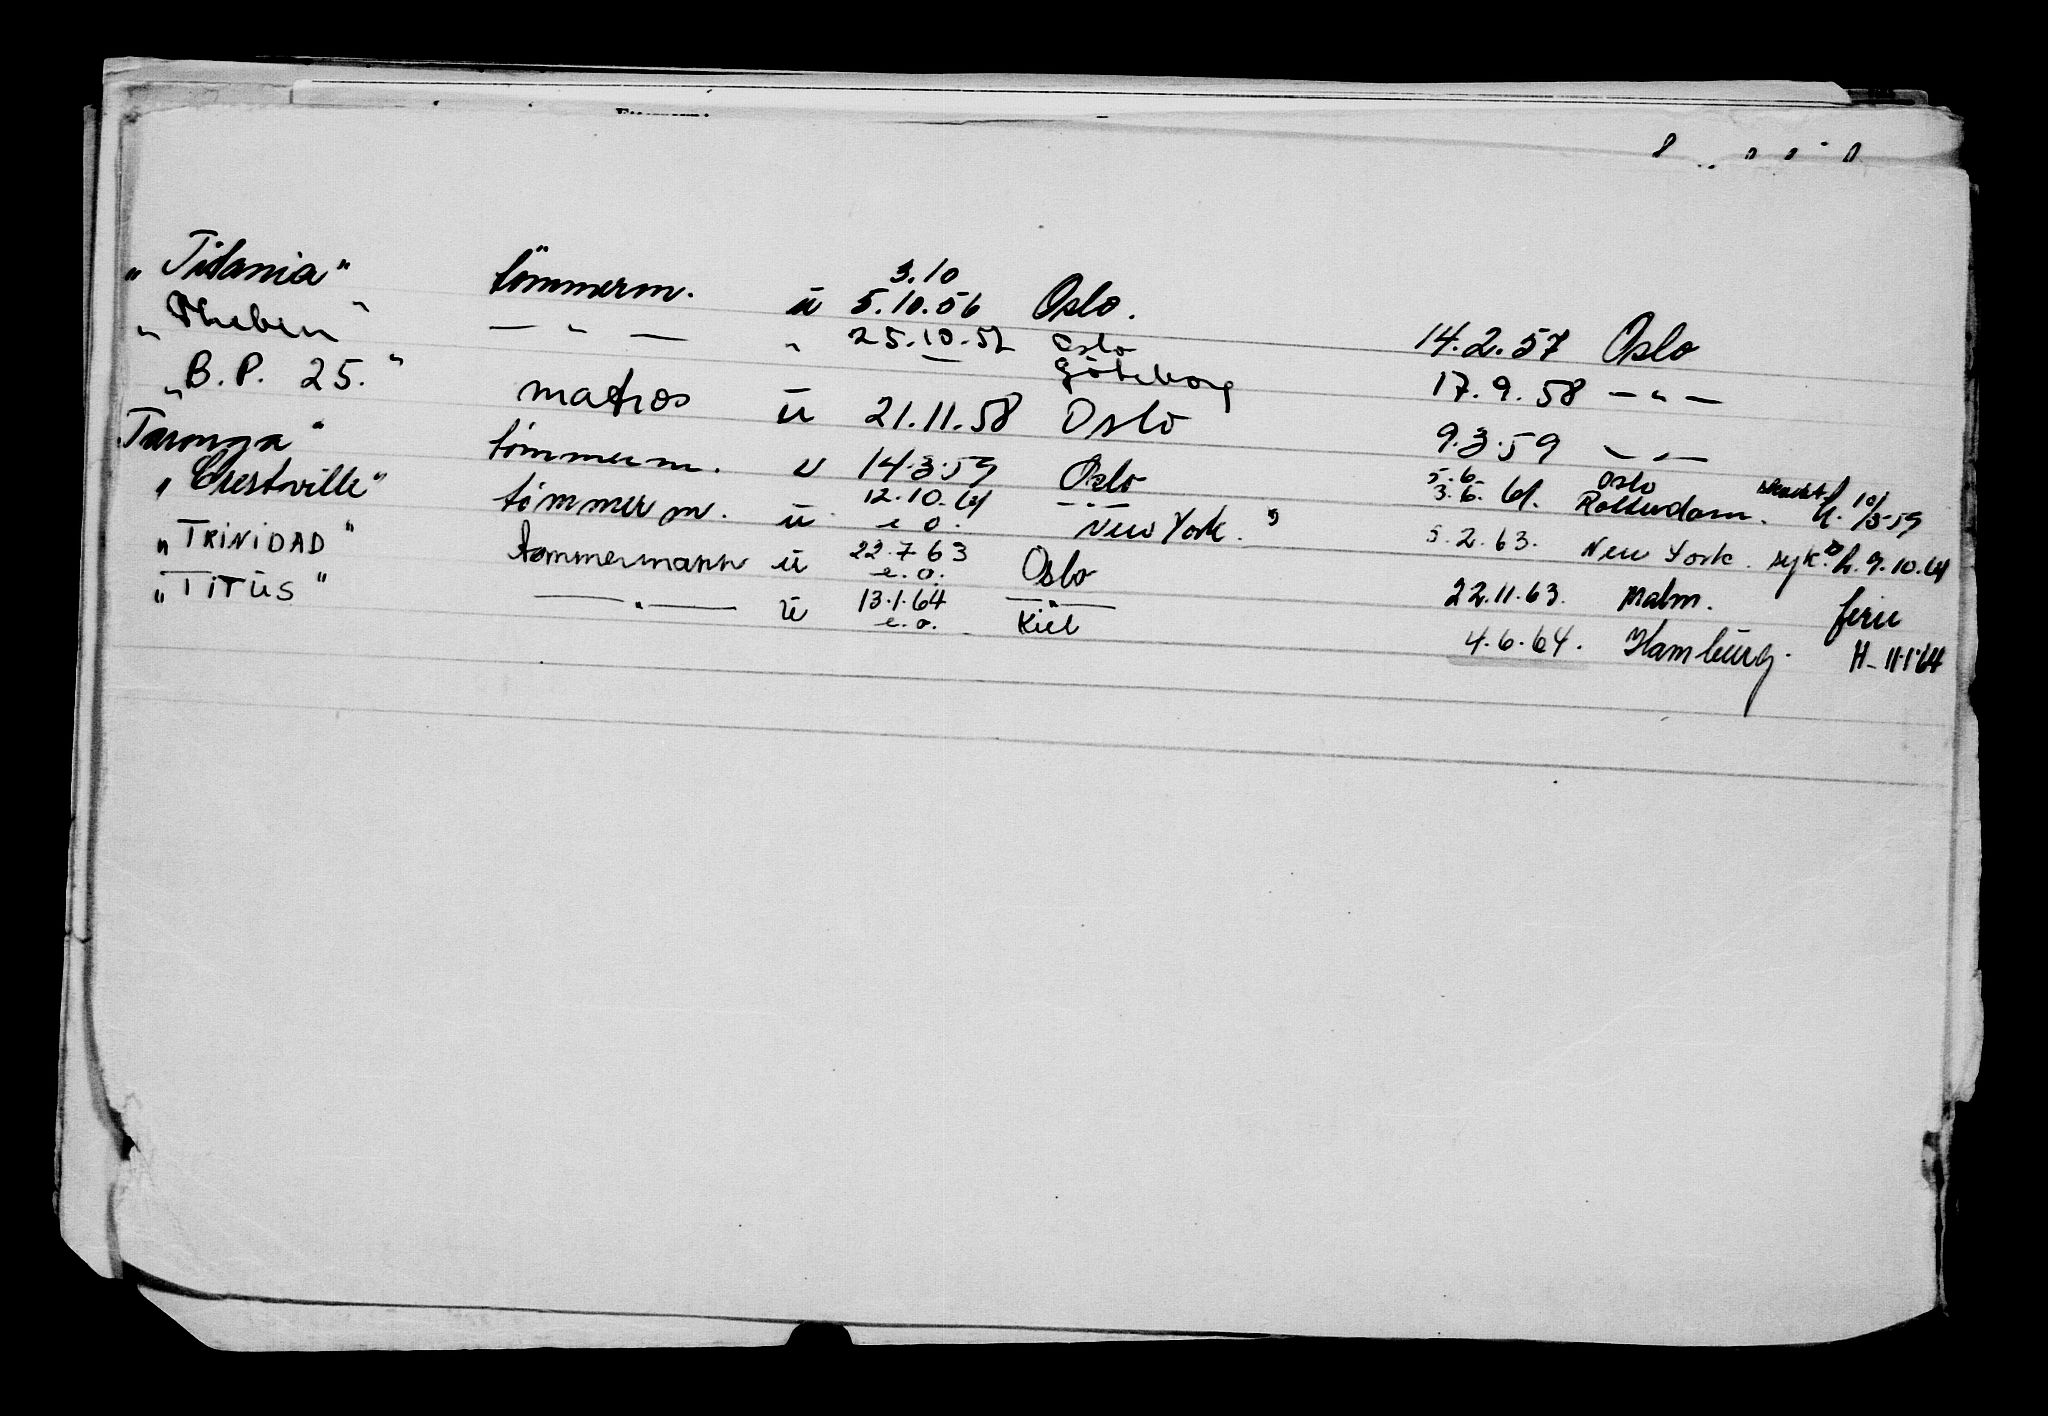 „Titania" tömmerm. ü 3.10 5.10.56 Oslo. 14.2.57 Oslo
„Theben" — " — " 25.10.57 Oslo Göteborg 17.9.58 — " —
„B.P. 25." matros ü 21.11.58 Oslo 9.3.59 — " —
Taronga" tömmerm. u 14.3.59 Oslo 5.6. 3.6.61. Oslo Rotterdam. 10/3-59
„Crestville" tömmerm. ü 12.10.61 e.o. — " — New York. 5.2.63. New York. syk. 9.10.61
„TRINIDAD" tømmermann ü 22.7.63 e.o. Oslo 22.11.63. Malm. ferie
„TITUS" — " — ü 13.1.64 e.o. — " — Kiel 4.6.64. Hamburg. H- 11.1.64